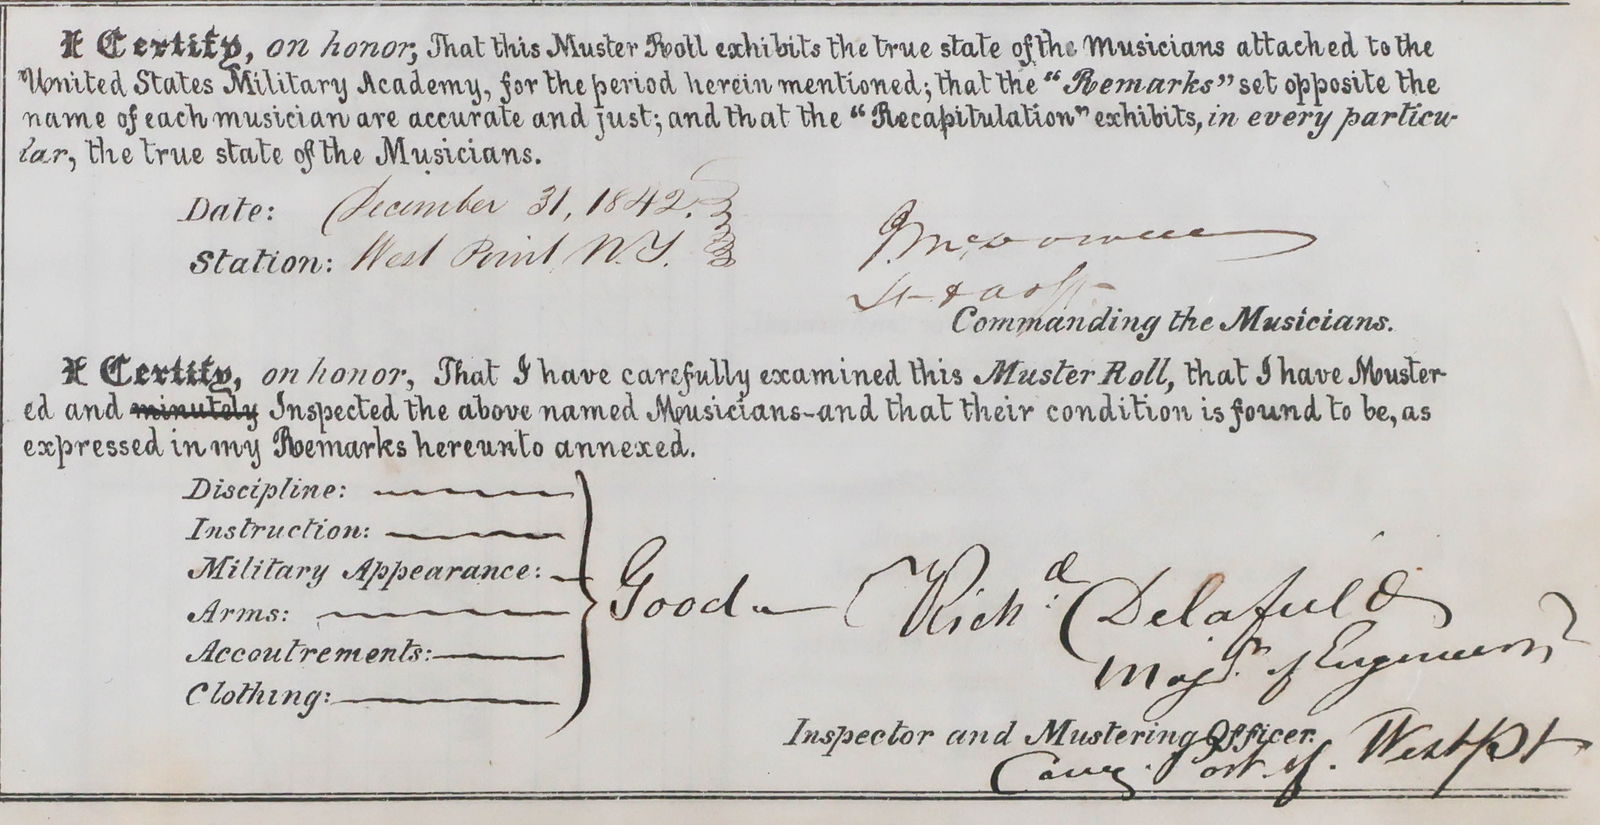 I Certify, on honor, That this Muster Roll exhibits the true state of the Musicians attached to the
United States Military Academy, for the period herein mentioned; that the "Remarks" set opposite the
name of each musician are accurate and just; and that the "Recapitulation" exhibits, in every particu-
lar, the true state of the Musicians.
Date: December 31, 1842.
Station: West Point, N.Y.
J McDowell
Commanding the Musicians.
I Certify, on honor, That I have carefully examined this Muster Roll, that I have Muster-
ed and minutely Inspected the above named Musicians-and that their condition is found to be, as
expressed in my Remarks hereunto annexed.
Discipline:
Instruction:
Military Appearance:
Arms:
Accoutrements:
Clothing:
Good
Richd: Delafield
Majr. of Engineers
Inspector and Mustering Officer.
Comg. Post of West pt